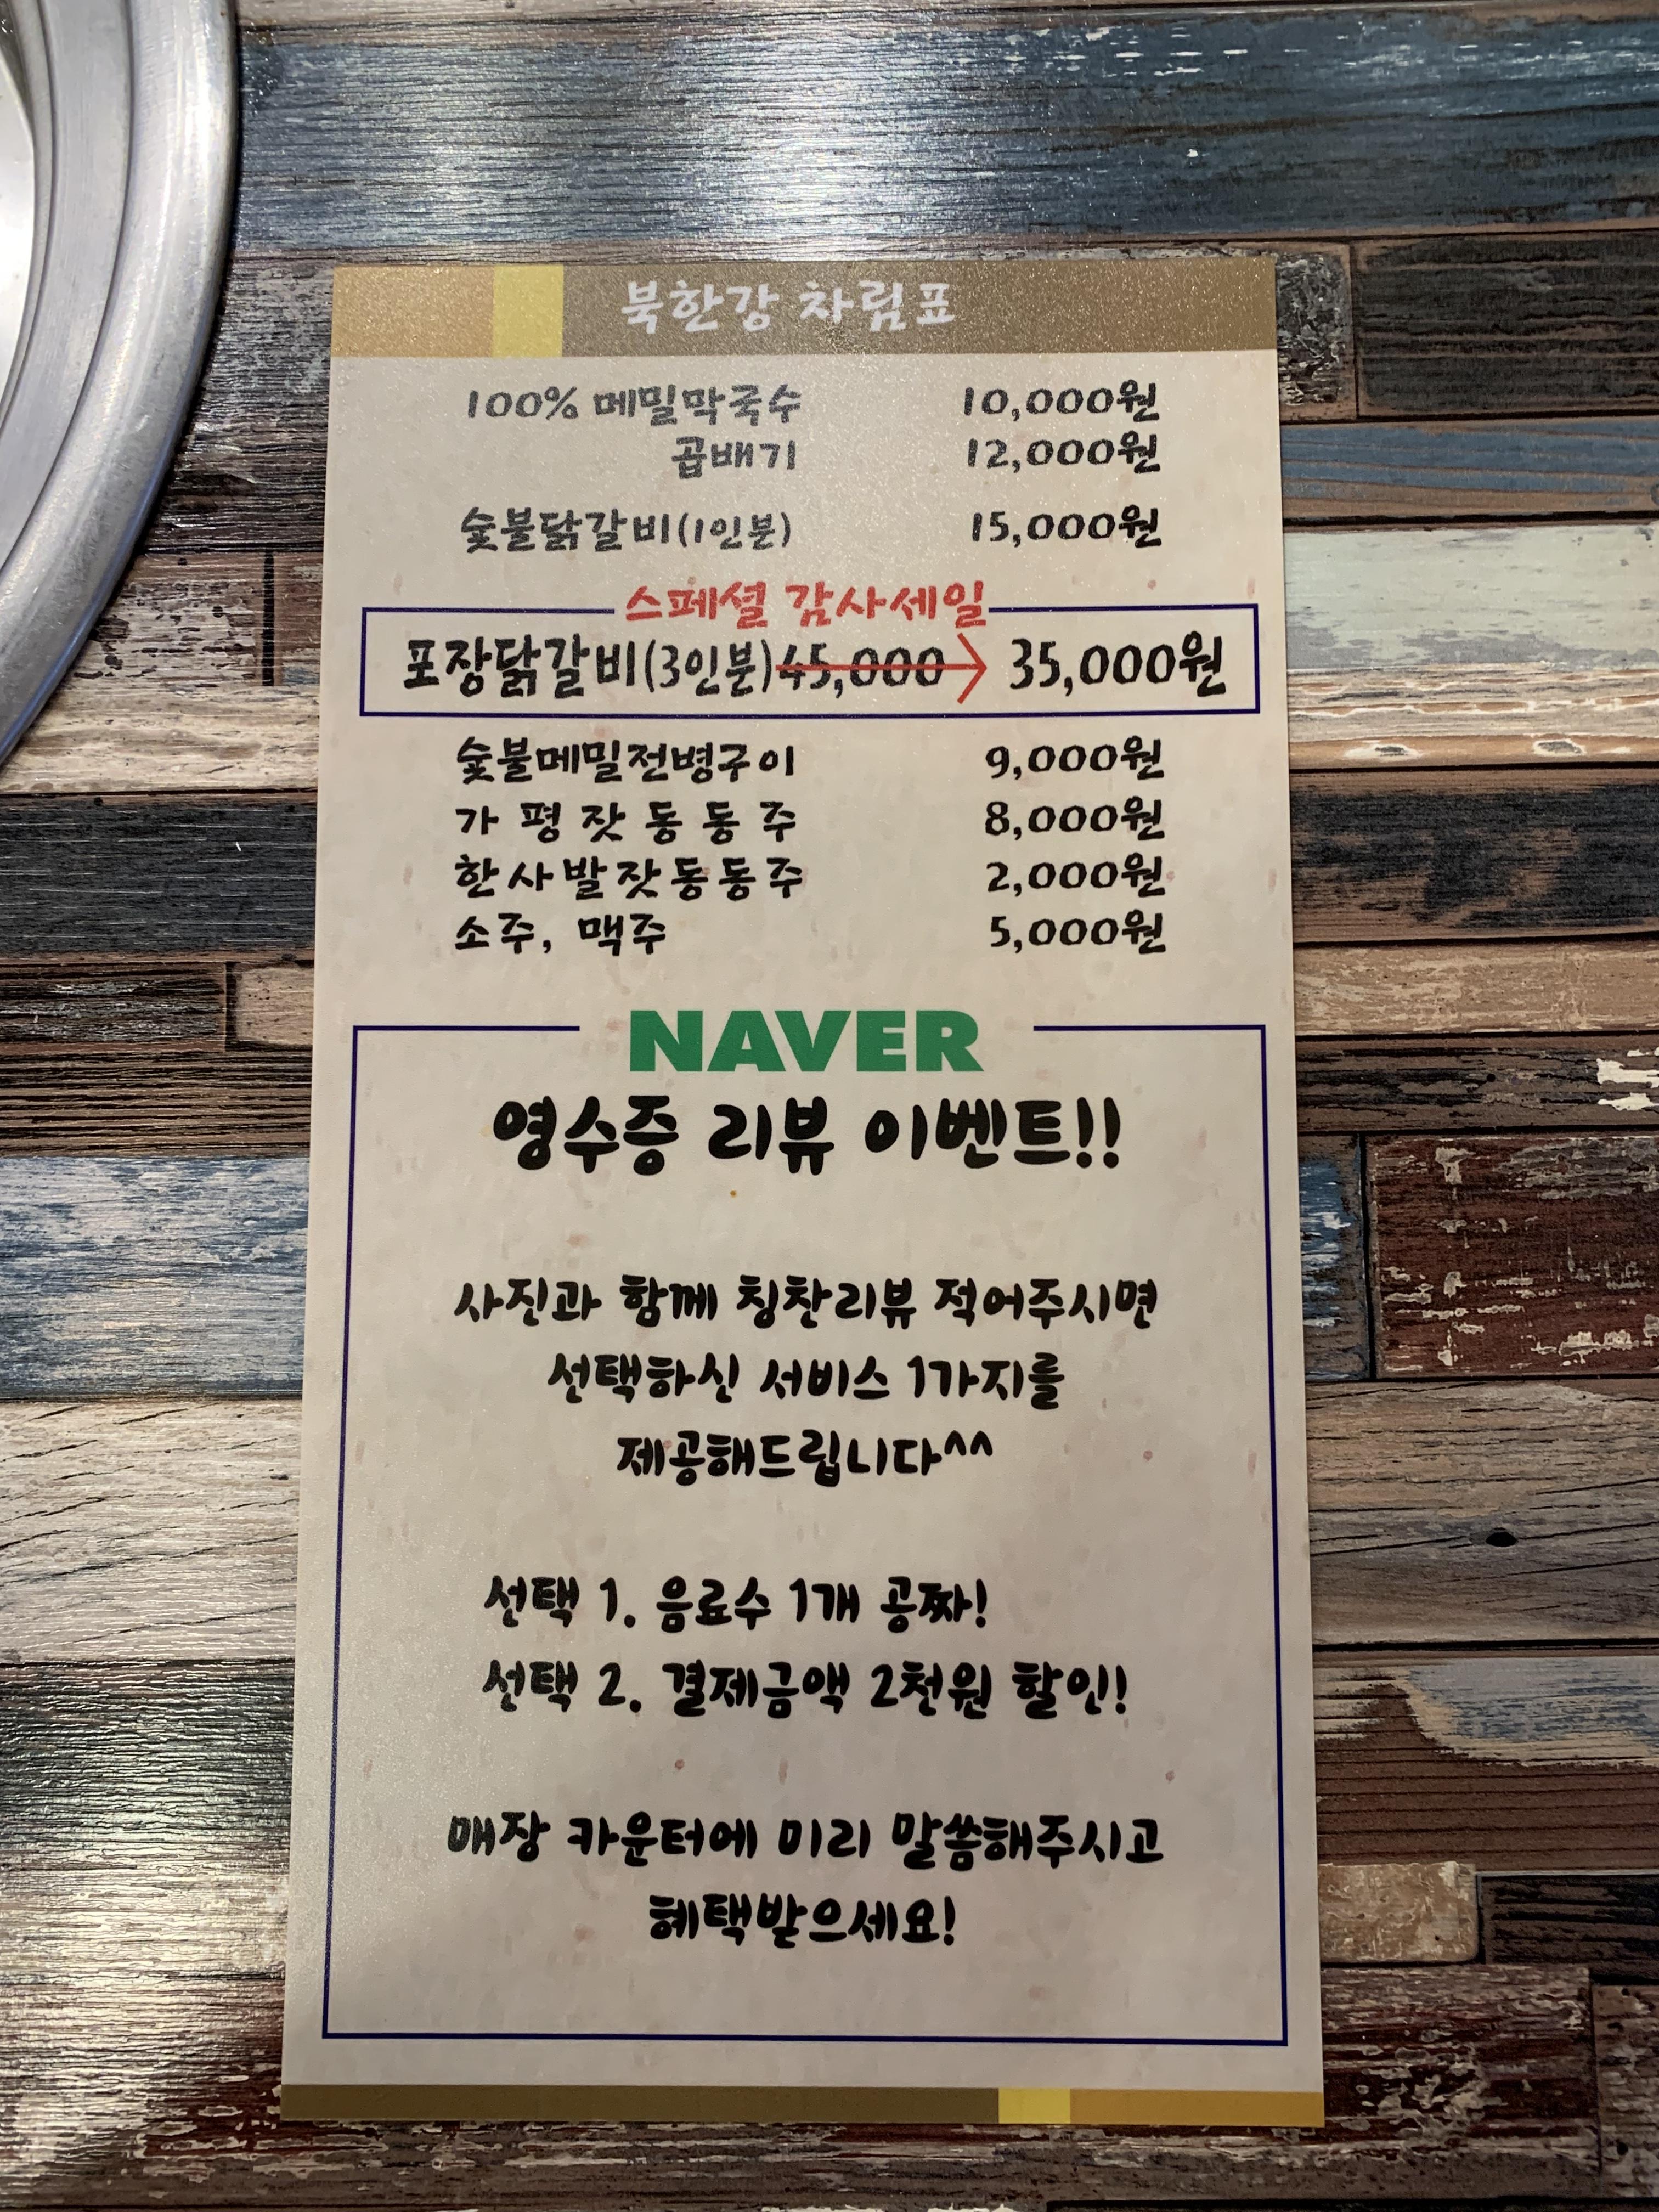 북한강 차림표
100% 메밀막국수 10,000원
곱배기 12,000원
숯불닭갈비(1인분) 15,000원
스페셜 감사세일
포장닭갈비(3인분) 45,000 → 35,000원
숯불메밀전병구이 9,000원
가평잣동동주 8,000원
한사발잣동동주 2,000원
소주, 맥주 5,000원
NAVER
영수증 리뷰 이벤트!!
사진과 함께 칭찬리뷰 적어주시면
선택하신 서비스 1가지를
제공해드립니다^^
선택 1. 음료수 1개 공짜!
선택 2. 결제금액 2천원 할인!
매장 카운터에 미리 말씀해주시고
혜택받으세요!